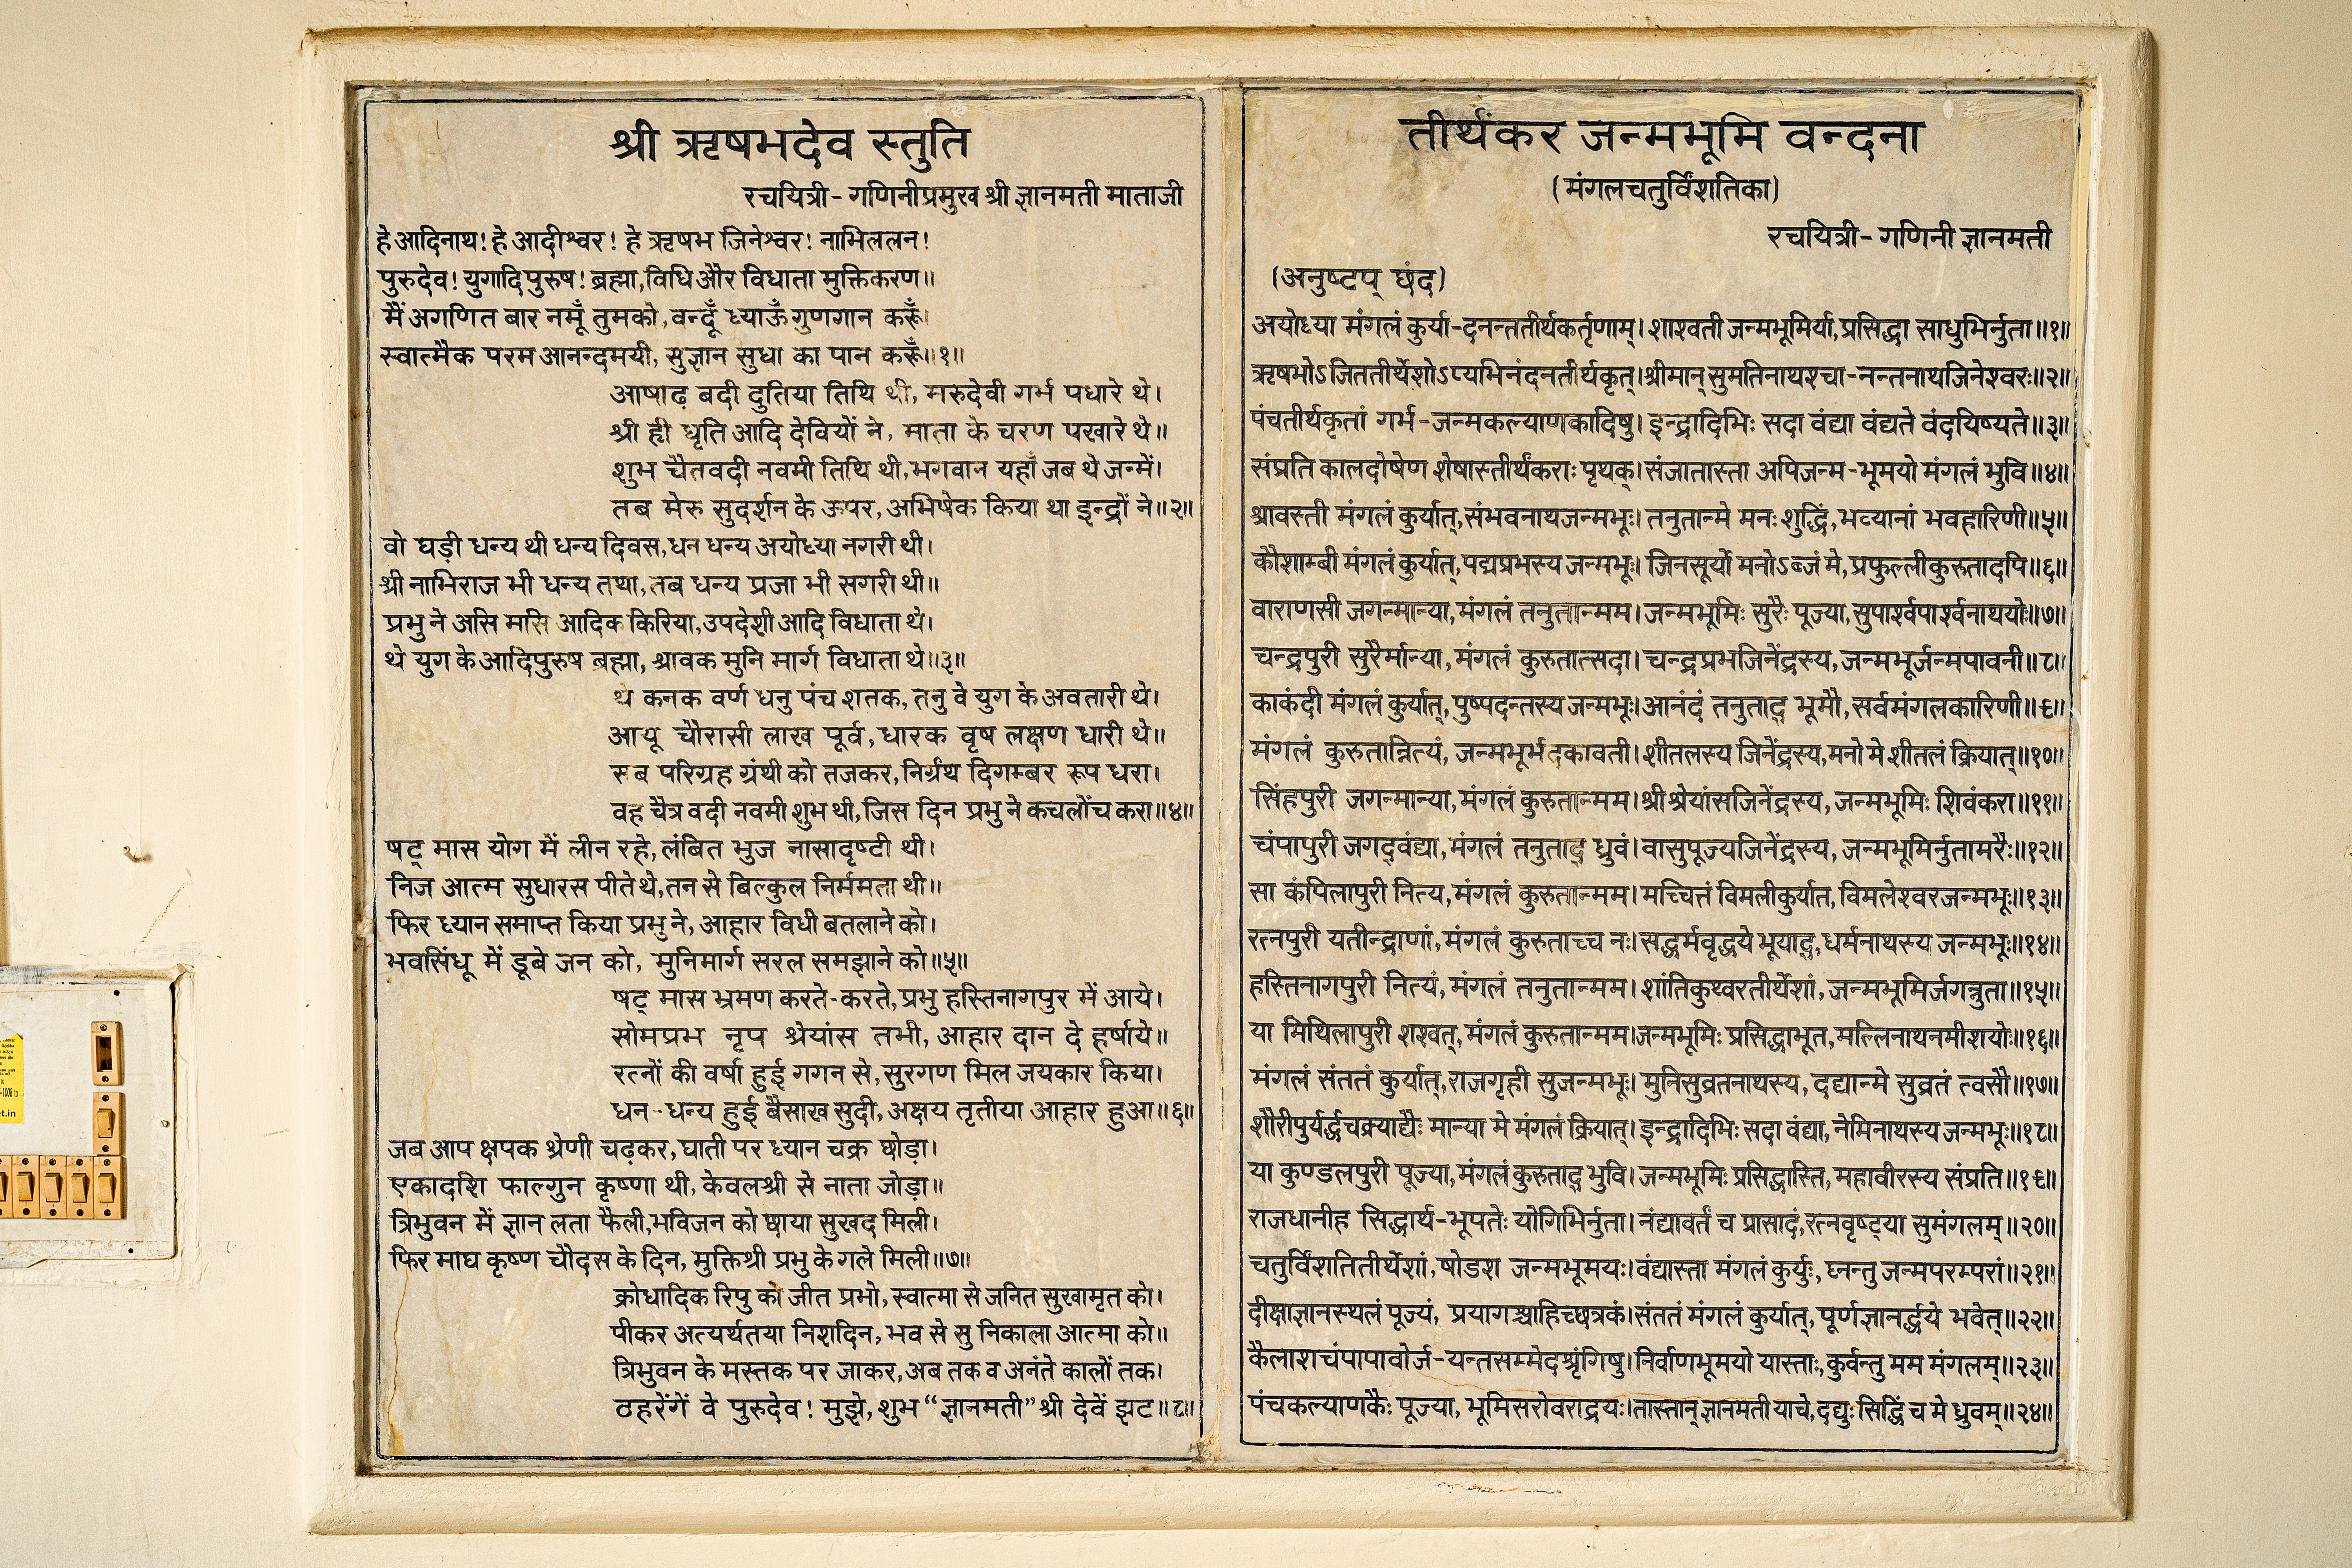 श्री ऋषभदेव स्तुति
रचयित्री- गणिनीप्रमुख श्री ज्ञानमती माताजी
हे आदिनाथ! हे आदीश्वर! हे ऋषभ जिनेश्वर! नाभिललन!
पुरुदेव! युगादिपुरुष! ब्रह्मा, विधि और विधाता मुक्तिकरण॥
मैं अगणित बार नमूँ तुमको, वन्दूँ ध्याऊँ गुणगान करूँ।
स्वात्मैक परम आनन्दमयी, सुज्ञान सुधा का पान करूँ॥१॥
आषाढ़ बदी दुतिया तिथि थी, मरुदेवी गर्भ पधारे थे।
श्री ह्री धृति आदि देवियों ने, माता के चरण पखारे थे॥
शुभ चैतवदी नवमी तिथि थी, भगवान यहाँ जब थे जन्में।
तब मेरु सुदर्शन के ऊपर, अभिषेक किया था इन्द्रों ने॥२॥
वो घड़ी धन्य थी धन्य दिवस, धन धन्य अयोध्या नगरी थी।
श्री नाभिराज भी धन्य तथा, तब धन्य प्रजा भी सगरी थी॥
प्रभु ने असि मसि आदिक किरिया, उपदेशी आदि विधाता थे।
थे युग के आदिपुरुष ब्रह्मा, श्रावक मुनि मार्ग विधाता थे॥३॥
थे कनक वर्ण धनु पंच शतक, तनु वे युग के अवतारी थे।
आयू चौरासी लाख पूर्व, धारक वृष लक्षण धारी थे॥
सब परिग्रह ग्रंथी को तजकर, निर्ग्रंथ दिगम्बर रूप धरा।
वह चैत्र वदी नवमी शुभ थी, जिस दिन प्रभु ने कचलोंच करा॥४॥
षट् मास योग में लीन रहे, लंबित भुज नासादृष्टी थी।
निज आत्म सुधारस पीते थे, तन से बिल्कुल निर्ममता थी॥
फिर ध्यान समाप्त किया प्रभु ने, आहार विधी बतलाने को।
भवसिंधू में डूबे जन को, मुनिमार्ग सरल समझाने को॥५॥
षट् मास भ्रमण करते-करते, प्रभु हस्तिनागपुर में आये।
सोमप्रभ नृप श्रेयांस तभी, आहार दान दे हर्षाये॥
रत्नों की वर्षा हुई गगन से, सुरगण मिल जयकार किया।
धन-धन्य हुई बैसाख सुदी, अक्षय तृतीया आहार हुआ॥६॥
जब आप क्षपक श्रेणी चढ़कर, घाती पर ध्यान चक्र छोड़ा।
एकादशि फाल्गुन कृष्णा थी, केवलश्री से नाता जोड़ा॥
त्रिभुवन में ज्ञान लता फैली, भविजन को छाया सुखद मिली।
फिर माघ कृष्ण चौदस के दिन, मुक्तिश्री प्रभु के गले मिली॥७॥
क्रोधादिक रिपु को जीत प्रभो, स्वात्मा से जनित सुखामृत को।
पीकर अत्यर्थतया निशदिन, भव से सु निकाला आत्मा को॥
त्रिभुवन के मस्तक पर जाकर, अब तक व अनंते कालों तक।
ठहरेंगें वे पुरुदेव! मुझे, शुभ “ज्ञानमती” श्री देवें झट॥८॥
तीर्थंकर जन्मभूमि वन्दना
(मंगलचतुर्विंशतिका)
रचयित्री- गणिनी ज्ञानमती
(अनुष्टप् छंद)
अयोध्या मंगलं कुर्या-दनन्ततीर्थकर्तृणाम्। शाश्वती जन्मभूमिर्या, प्रसिद्धा साधुभिर्नुता॥१॥
ऋषभोऽजिततीर्थेशोऽप्यभिनंदनतीर्थकृत्। श्रीमान् सुमतिनाथश्चा-नन्तनाथजिनेश्वरः॥२॥
पंचतीर्थकृतां गर्भ-जन्मकल्याणकादिषु। इन्द्रादिभिः सदा वंद्या वंद्यते वंदयिष्यते॥३॥
संप्रति कालदोषेण शेषास्तीर्थंकराः पृथक्। संजातास्ता अपिजन्म-भूमयो मंगलं भुवि॥४॥
श्रावस्ती मंगलं कुर्यात्, संभवनाथजन्मभूः। तनुतान्मे मनः शुद्धिं, भव्यानां भवहारिणी॥५॥
कौशाम्बी मंगलं कुर्यात्, पद्मप्रभस्य जन्मभूः। जिनसूर्यो मनोऽब्जं मे, प्रफुल्लीकुरुतादपि॥६॥
वाराणसी जगन्मान्या, मंगलं तनुतान्मम। जन्मभूमिः सुरैः पूज्या, सुपार्श्वपार्श्वनाथयोः॥७॥
चन्द्रपुरी सुरैर्मान्या, मंगलं कुरुतात्सदा। चन्द्रप्रभजिनेंद्रस्य, जन्मभूर्जन्मपावनी॥८॥
काकंदी मंगलं कुर्यात्, पुष्पदन्तस्य जन्मभूः। आनंदं तनुताद् भूमौ, सर्वमंगलकारिणी॥९॥
मंगलं कुरुतान्नित्यं, जन्मभूर्भदकावती। शीतलस्य जिनेंद्रस्य, मनो मे शीतलं क्रियात्॥१०॥
सिंहपुरी जगन्मान्या, मंगलं कुरुतान्मम। श्री श्रेयांसजिनेंद्रस्य, जन्मभूमिः शिवंकरा॥११॥
चंपापुरी जगद्वंद्या, मंगलं तनुताद् ध्रुवं। वासुपूज्यजिनेंद्रस्य, जन्मभूमिर्नुतामरैः॥१२॥
सा कंपिलापुरी नित्य, मंगलं कुरुतान्मम। मच्चित्तं विमलीकुर्यात, विमलेश्वरजन्मभूः॥१३॥
रत्नपुरी यतीन्द्राणां, मंगलं कुरुताच्च नः। सद्धर्मवृद्धये भूयाद्, धर्मनाथस्य जन्मभूः॥१४॥
हस्तिनागपुरी नित्यं, मंगलं तनुतान्मम। शांतिकुथ्वरतीर्थेशां, जन्मभूमिर्जगन्नुता॥१५॥
या मिथिलापुरी शश्वत्, मंगलं कुरुतान्मम। जन्मभूमिः प्रसिद्धाभूत, मल्लिनाथनमीशयोः॥१६॥
मंगलं संततं कुर्यात्, राजगृही सुजन्मभूः। मुनिसुव्रतनाथस्य, दद्यान्मे सुव्रतं त्वसौ॥१७॥
शौरीपुर्यर्द्धचक्र्याद्यैः मान्या मे मंगलं क्रियात्। इन्द्रादिभिः सदा वंद्या, नेमिनाथस्य जन्मभूः॥१८॥
या कुण्डलपुरी पूज्या, मंगलं कुरुताद् भुवि। जन्मभूमिः प्रसिद्धास्ति, महावीरस्य संप्रति॥१९॥
राजधानीह सिद्धार्थ-भूपतेः योगिभिर्नुता। नंद्यावर्तं च प्रासादं, रत्नवृष्ट्या सुमंगलम्॥२०॥
चतुर्विंशतितीर्थेशां, षोडश जन्मभूमयः। वंद्यास्ता मंगलं कुर्युः, घ्नन्तु जन्मपरम्परां॥२१॥
दीक्षाज्ञानस्थलं पूज्यं, प्रयागश्चाहिच्छत्रकं। संततं मंगलं कुर्यात्, पूर्णज्ञानर्द्धये भवेत्॥२२॥
कैलाशचंपापावोर्ज-यन्तसम्मेदश्रृंगिषु। निर्वाणभूमयो यास्ताः, कुर्वन्तु मम मंगलम्॥२३॥
पंचकल्याणकैः पूज्या, भूमिसरोवराद्रयः। तास्तान् ज्ञानमती याचे, दद्युः सिद्धिं च मे ध्रुवम्॥२४॥